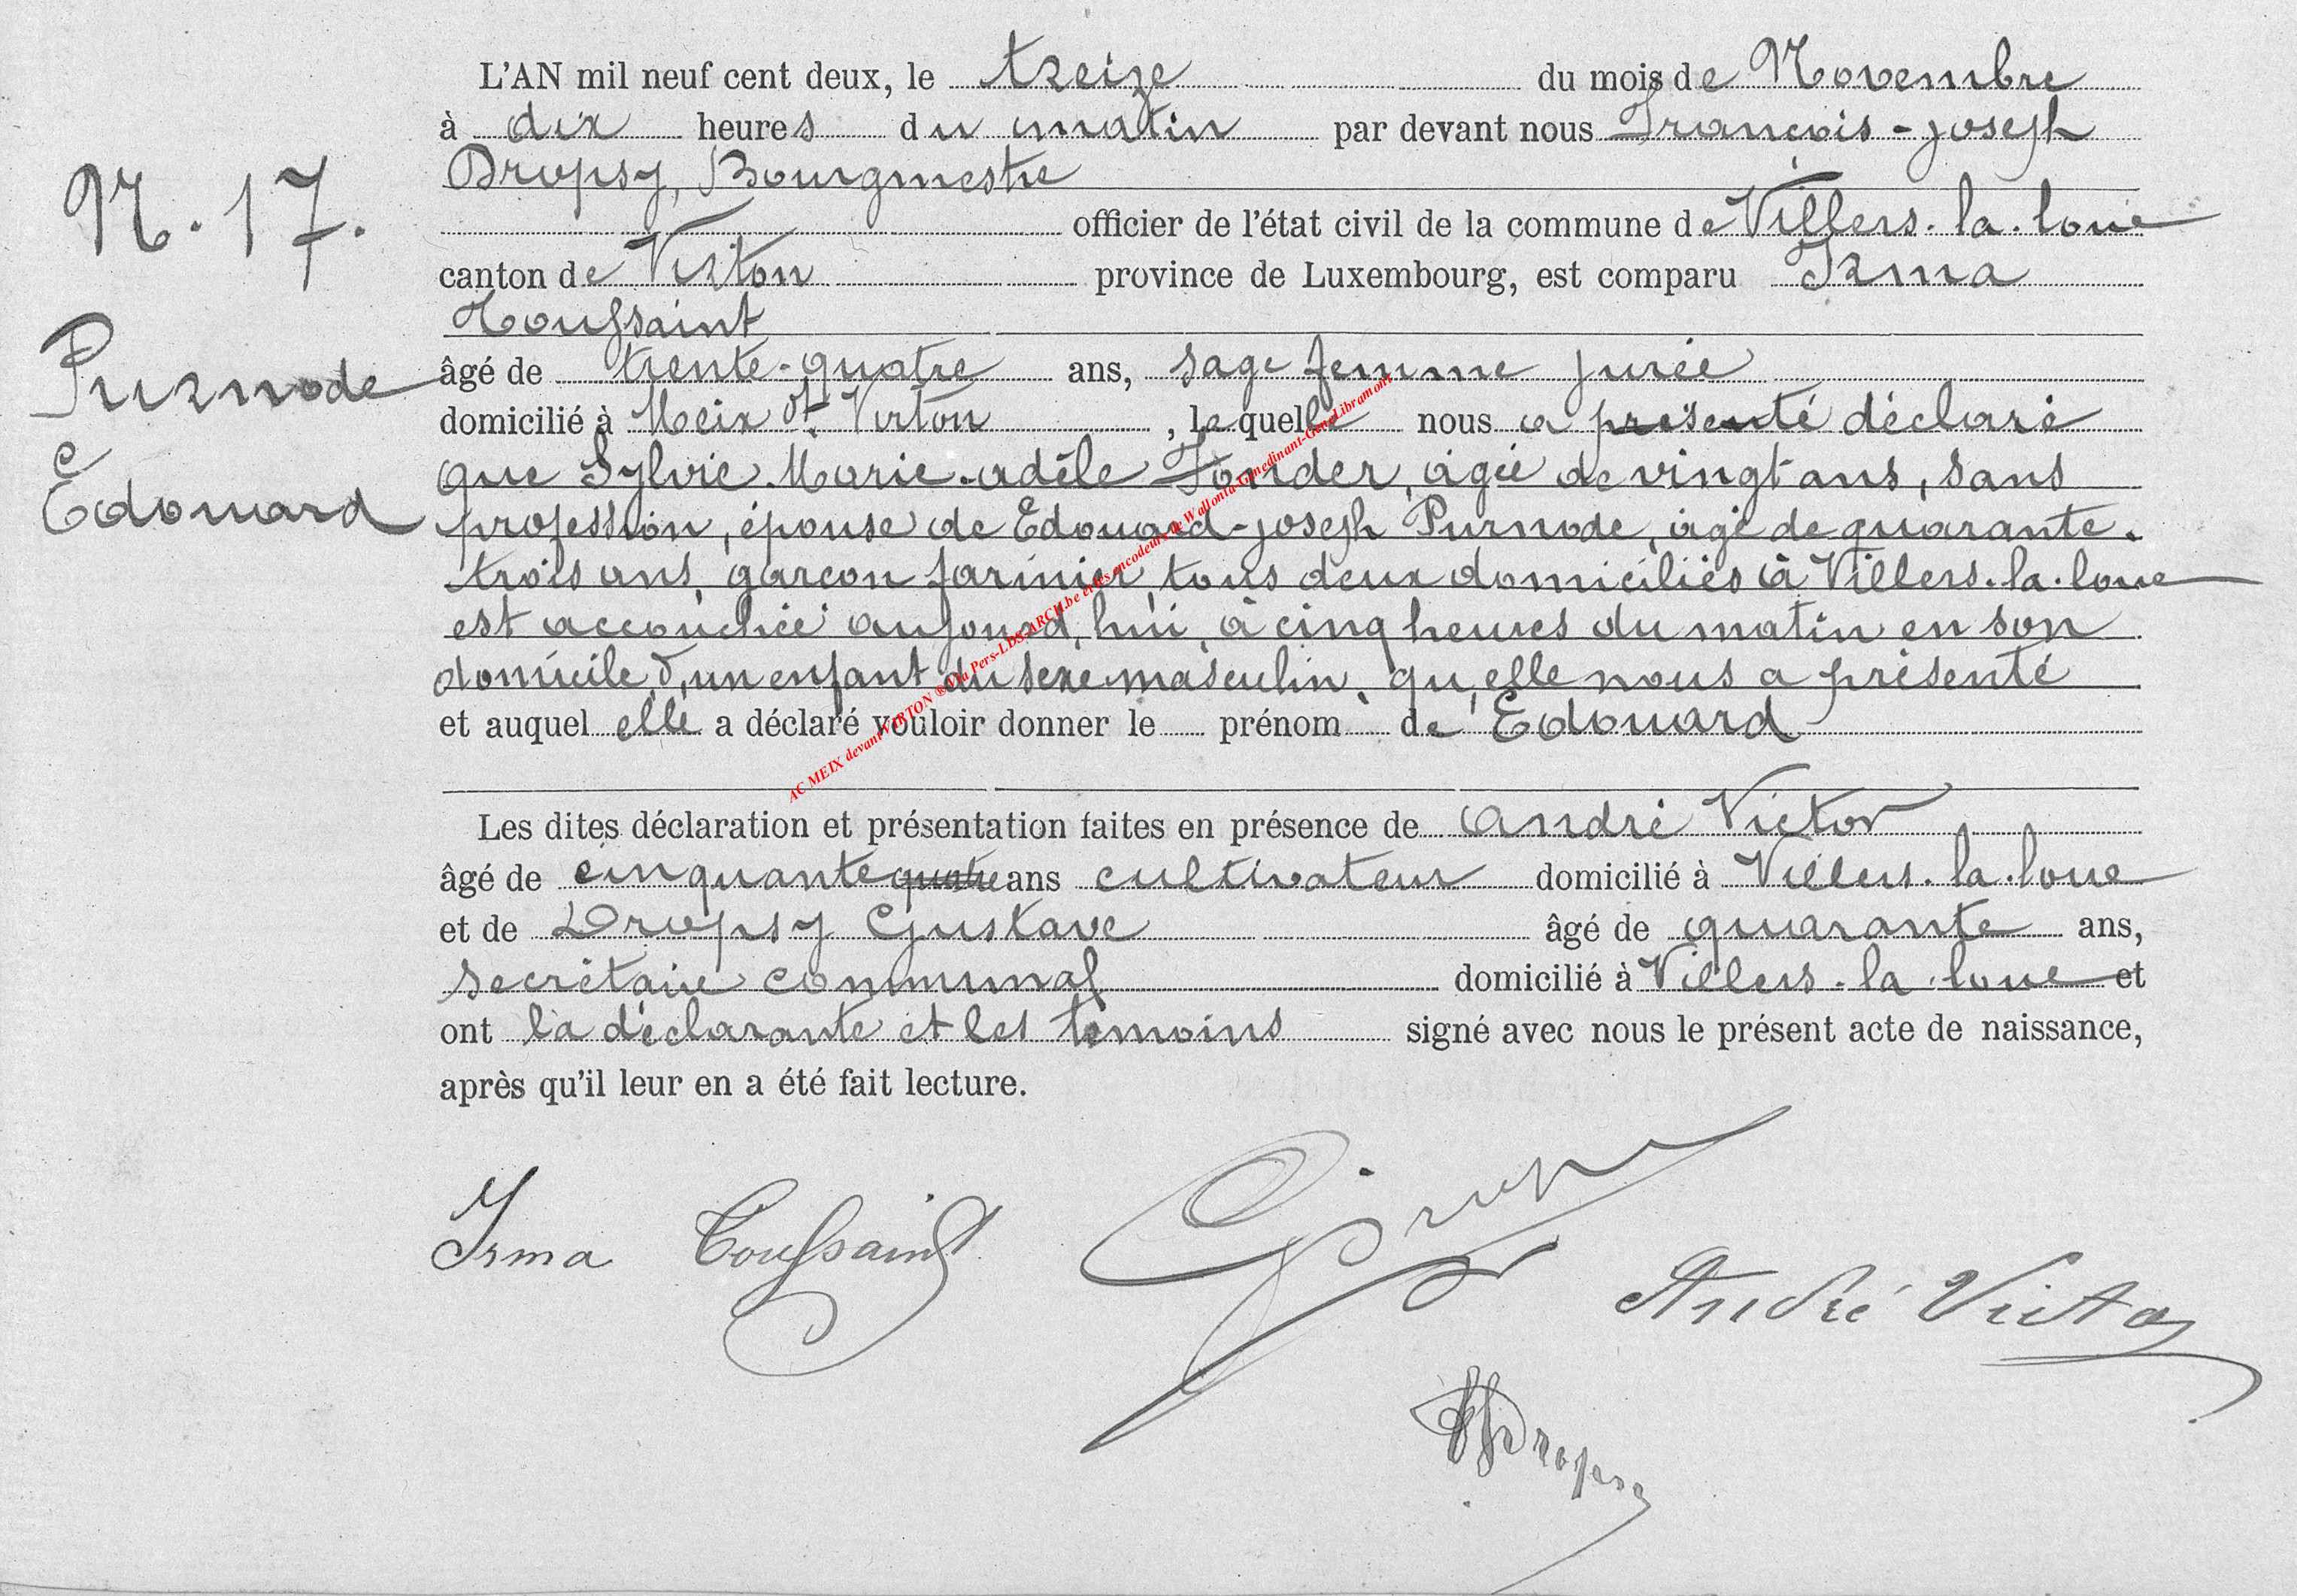 L'AN mil neuf cent deux, le treize du mois de Novembre
à dix heures du matin par devant nous François-joseph
Dropsy, Bourgmestre
officier de l'état civil de la commune de Villers-la-loue
canton de Virton province de Luxembourg, est comparu Irma
Toussaint
âgé de trente-quatre ans, sage femme jurée
domicilié à Meix dt Virton, laquelle nous a présenté déclaré
que Sylvie-Marie-adèle Fonder, agée de vingt ans, sans
profession, épouse de Edouard-joseph Purnode, âgé de quarante-
trois ans, garcon farinier, tous deux domiciliés à Villers-la-loue
est accouchée aujourd,hui, à cinq heures du matin en son
domicile, d,un enfant du sexe masculin, qu,elle nous a présenté
et auquel elle a déclaré vouloir donner le prénom de Edouard
Les dites déclaration et présentation faites en présence de andré Victor
âgé de cinquante quatre ans cultivateur domicilié à Villers-la-loue
et de Dropsy Gustave âgé de quarante ans,
secrétaire communal domicilié à Villers-la-loue et
ont la déclarante et les témoins signé avec nous le présent acte de naissance,
après qu'il leur en a été fait lecture.
N. 17.
Purnode
Edouard
AC MEIX devant VIRTON ® Via Pers-LDS-ARCH.be et les encodeurs de Wallonia-Genedinant-GeneLibramont
Irma Toussaint
G Dropsy
André Victor
Dropsy